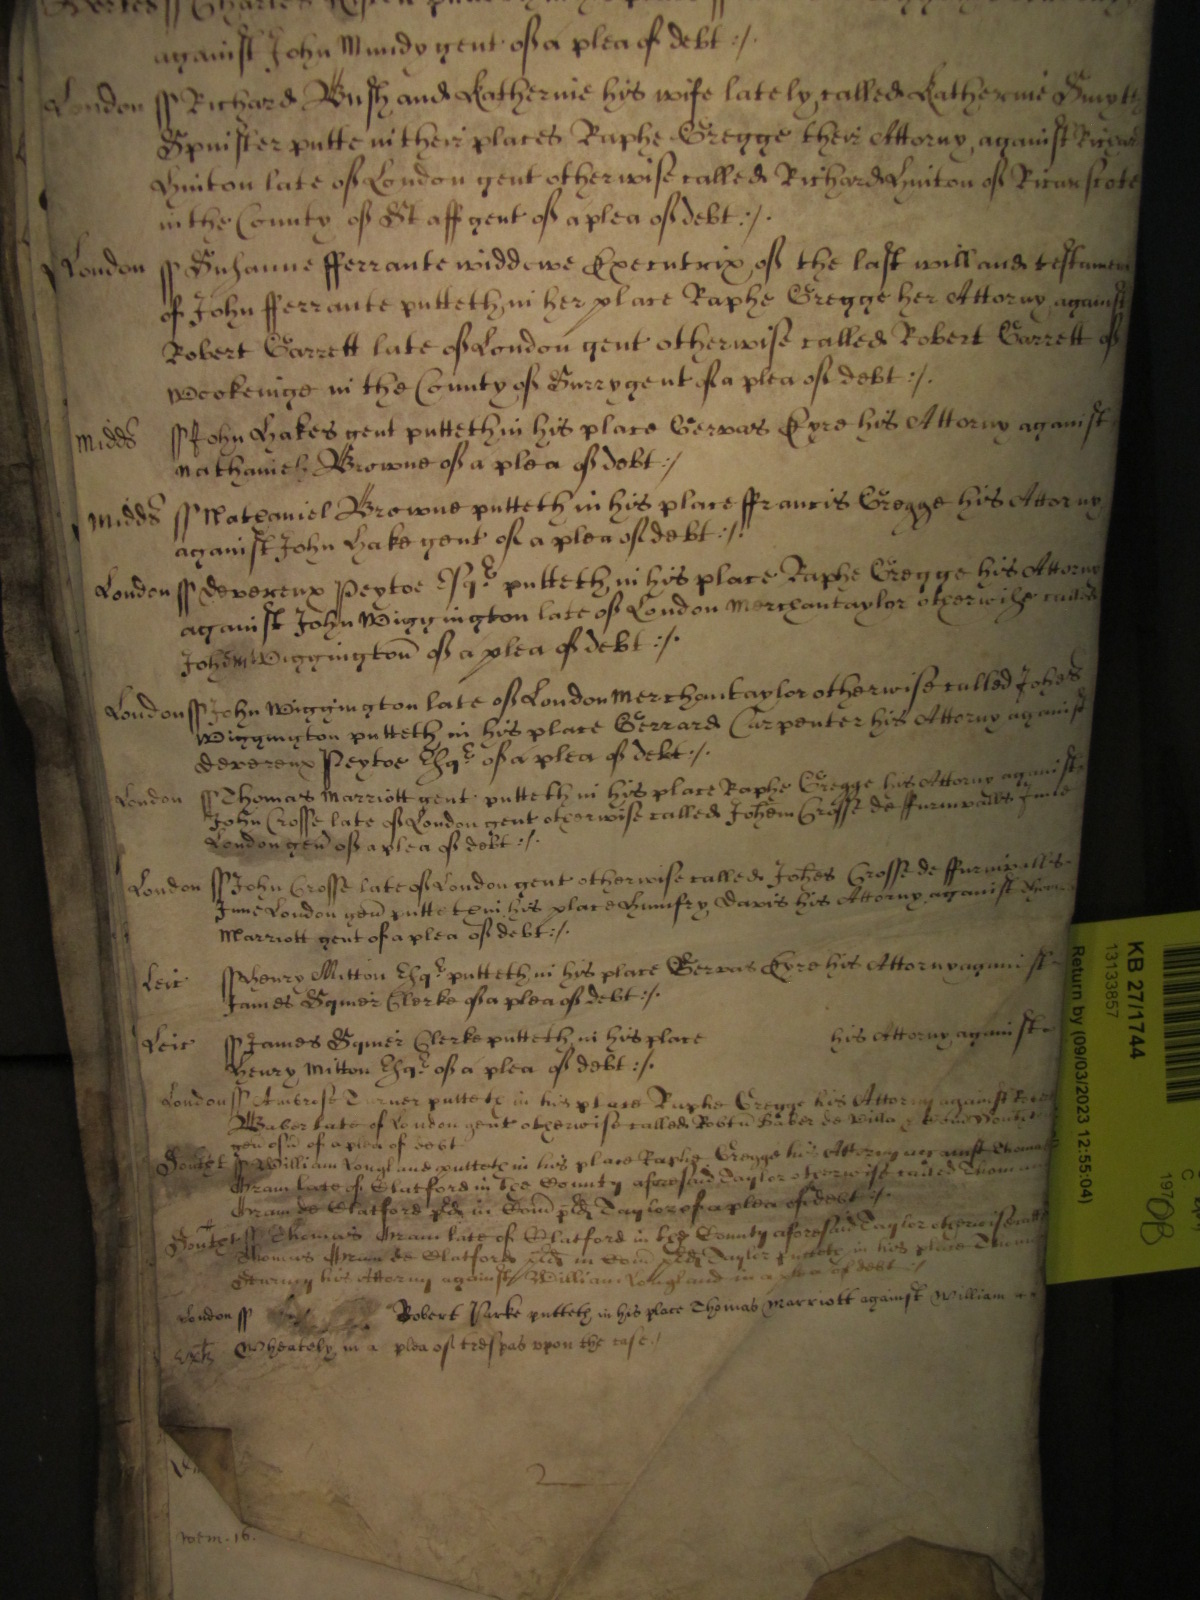 against John Mundy gent of a plea of debt :/.
London ss Richard Bush and Katherine his wife lately called Katherine Smyth
Spinster putte in their places Raphe Gregge their Attorny against Richard
Hinton late of London gent otherwise called Richard Hinton of Ricarscote
in the County of Staff gent of a plea of debt :/.
London ss Susanne fferrante widdowe Executrix of the last will and testament
of John fferrante putteth in her place Raphe Gregge her Attorny against
Robert Garrett late of London gent otherwise called Robert Garrett of
Wookeinge in the County of Surry gent of a plea of debt :/.
Midds ss John Hakes gent putteth in his place Gervas Eyre his Attorny against
Nathaniell Browne of a plea of debt :/
Midds ss Nathaniel Browne putteth in his place ffrancis Gregge his Attorny
against John Hake gent of a plea of debt :/.
London ss Devereux Peytoe Esqr putteth in his place Raphe Gregge his Attorny
against John Wiggington late of London Merchantaylor otherwise called
Johem Wiggington of a plea of debt :/.
London ss John Wiggington late of London Merchantaylor otherwise called Johes
Wiggington putteth in his place Gerrard Carpenter his Attorny against
Devereux Peytoe Esqr of a plea of debt :/.
London ss Thomas Marriott gent putteth in his place Raphe Gregge his Attorny against
John Crosse late of London gent otherwise called Johem Crosse de ffurnivalls Inne
London gen of a plea of debt :/.
London ss John Crosse late of London gent otherwise called Johes Crosse de ffurnivalls
Inne London gen putteth in his place Humfry Davis his Attorny against Thomas
Marriott gent of a plea of debt :/.
Leic ss Henry Mitton Esqr putteth in his place Gervas Eyre his Attorny against
James Clerke of a plea of debt :/.
Leic ss James Clerke putteth in his place his Attorny against
Henry Mitton Esqr of a plea of debt :/.
London ss Ambrose Turner putteth in his place Raphe Gregge his Attorny against
Baker late of London gent otherwise called Robtu Baker de villa
gen of a plea of debt
ss William Longland putteth in his place Raphe Gregge his Attorny against Thomas
late of Slatford in the County aforesaid Taylor otherwise called Thomam
de Slatford pd in Com pd Taylor of a plea of debt :/.
ss Thomas late of Slatford in the County aforesaid Taylor otherwise called
Thomas de Slatford pd in Com pd Taylor putteth in his place Thomas
his Attorny against William Longland in a plea of debt :/
London ss Robert Parke putteth in his place Thomas Marriott against William
Wheately in a plea of trespas upon the case ./
Mem. 16.
KB 27/1744
13133857
Return by (09/03/2023 12:55:04)